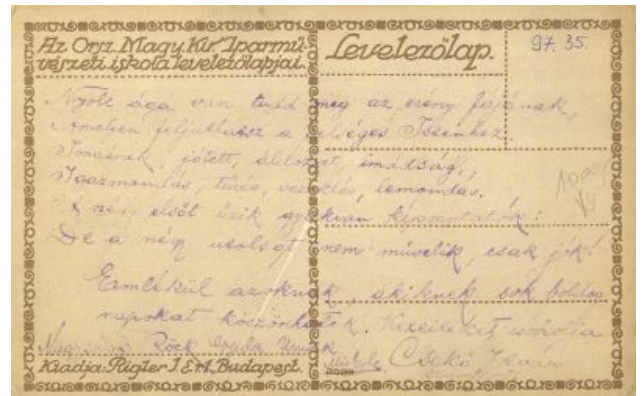 Az Orsz. Magy. Kir. Iparmű-
vészeti iskola levelezőlapjai.
Levelezőlap.
97. 35.
Nyolc ága van tudd meg az erény fájának,
Amelyen feljuthatsz a felséges Istenhez
jótett, áldozat, imádság,
Igazmondás, tűrés, vezeklés, lemondás.
négy elsőt űzik gyakran képmutatók:
De a négy utolsót nem művelik, csak jók!
Emlékül azoknak, akiknek sok boldog
napokat köszönhetek. Kezeiket csókolja
Röck Gyula
Kiadja: Rigler J. E. R.T. Budapest.